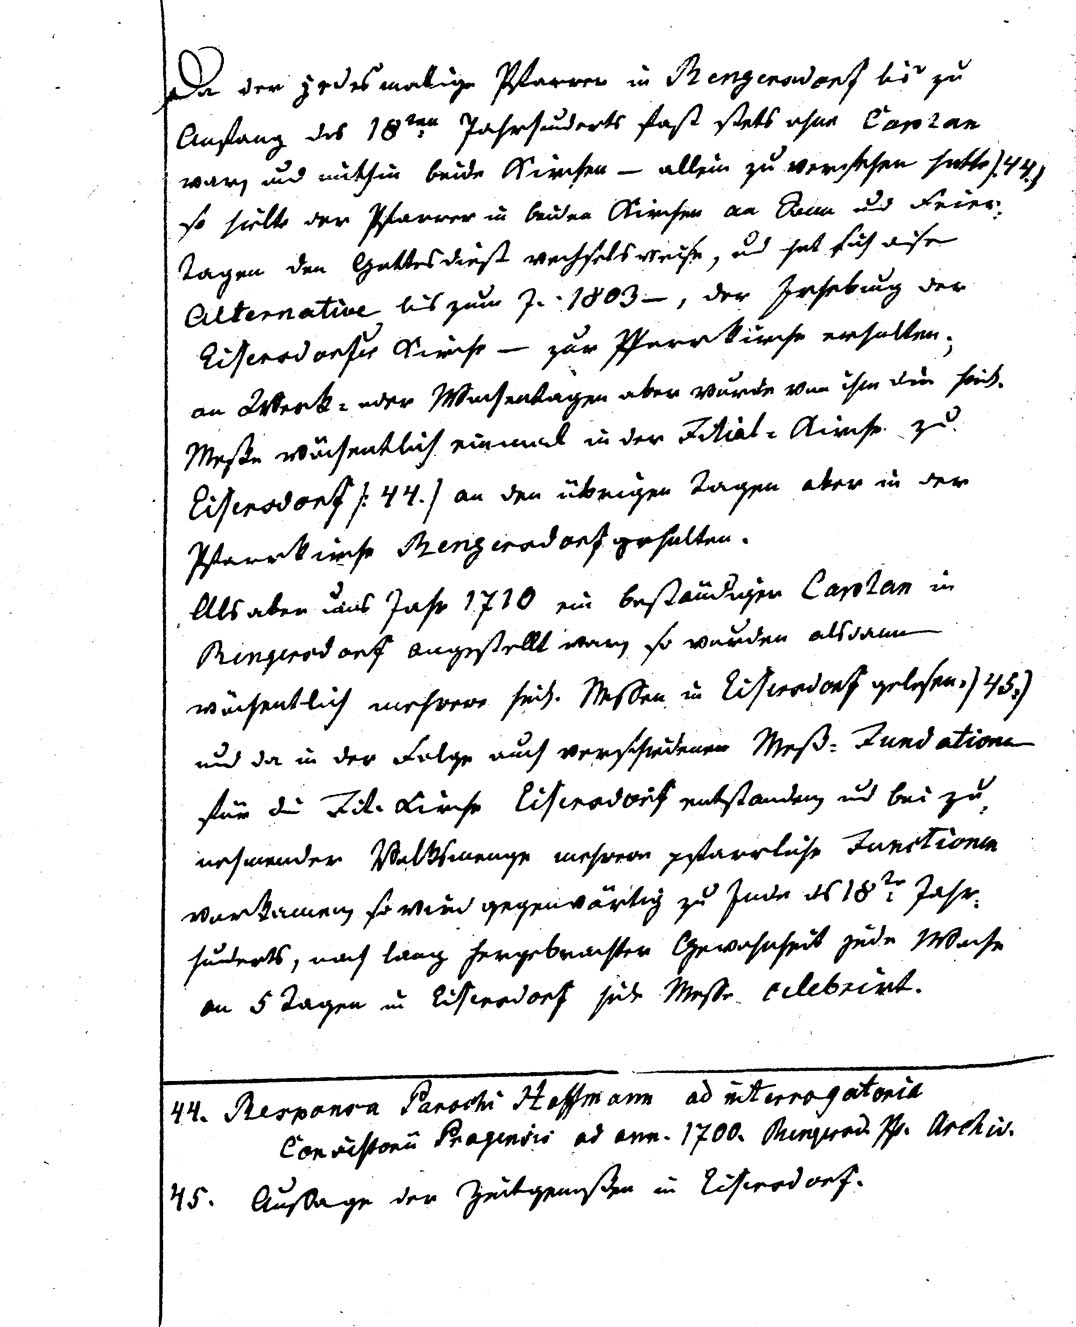 Da der jedesmalige Pfarrer in Rengersdorf bis zu
Anfang des 18ten Jahrhunderts fast stets ohne Caplan
war, und mithin beide Kirchen – allein zu versehen hatte /:44:/
so hielt der Pfarrer in beiden Kirchen an Sonn und Feier-
tagen den Gottesdienst wechselsweise, und hat sich diese
Alternative bis zum J. 1803 –, der Erhebung der
Eisersdorfer Kirche – zur Pfarrkirche erhalten;
an Werk- oder Wochentagen aber wurde von ihm die heil.
Messe wöchentlich einmal in der Filial-Kirche zu
Eisersdorf /:44./ an den übrigen Tagen aber in der
Pfarrkirche Rengersdorf gehalten.
Als aber ums Jahr 1710 ein beständiger Caplan in
Rengersdorf angestellt war, so wurden alsdann
wöchentlich mehrere heil. Messen in Eisersdorf gelesen /:45:/
und da in der Folge auch verschiedene Meß-Fundationen
für die Fil. Kirche Eisersdorf entstanden, und bei zu-
nehmender Volksmenge mehrere pfarrliche Functionen
vorkamen, so wird gegenwärtig zu Ende des 18ten Jahr-
hunderts, nach lang hergebrachter Gewohnheit jede Woche
an 5 Tagen in Eisersdorf heil. Messe celebrirt.
44. Responsa Parochi Hoffmann ad interrogatoria
Consistorii Pragensis ad ann. 1700. Rengersd. Pf. Archiv.
45. Aussage der Zeitgenossen in Eisersdorf.